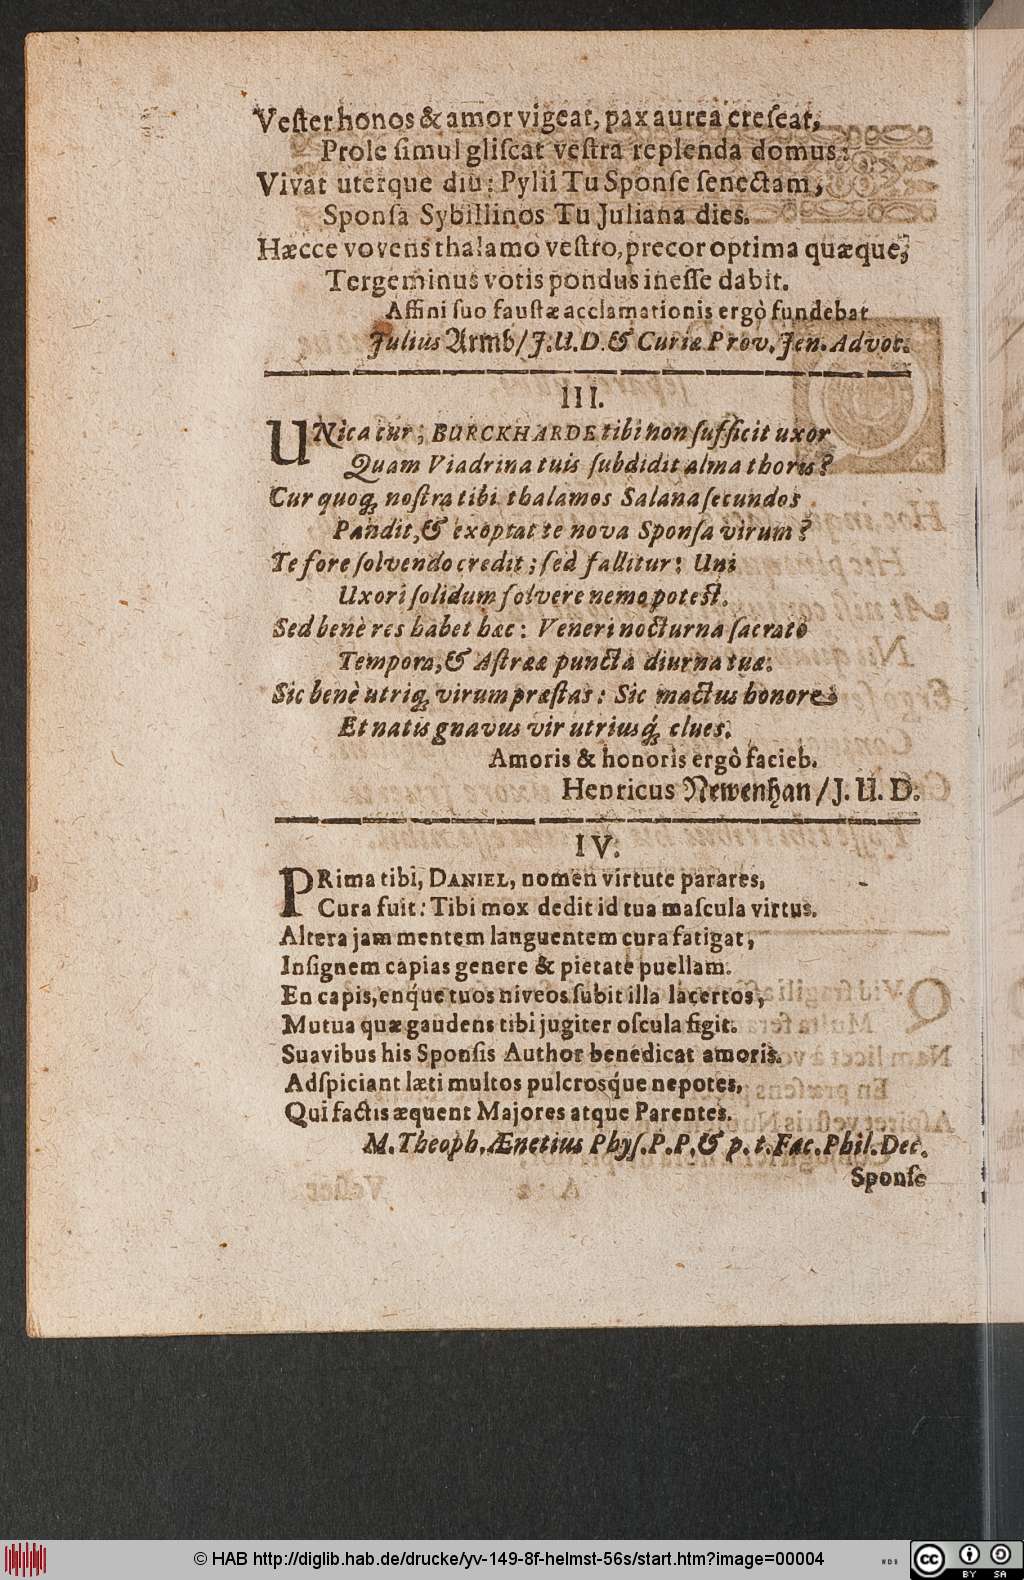 Veſter honos & amor vigeat, pax aurea creſcat,
Prole ſimul gliſcat veſtra replenda domus:
Vivat uterque diu: Pylii Tu Sponſe ſenectam,
Sponſa Sybillinos Tu Juliana dies.
Hæcce vovens thalamo veſtro, precor optima quæque,
Tergeminus votis pondus ineſſe dabit.
Affini ſuo fauſtæ acclamationis ergò fundebat
Julius Armb/ J. U. D. & Curiæ Prov. Jen. Advoc.
III.
UNica cur, BURCKHARDE tibi non ſufficit uxor
Quam Viadrina tuis ſubdidit alma thoris?
Cur quoq; noſtra tibi thalamos Salana ſecundos
Pandit, & exoptat te nova Sponſa virum?
Te fore ſolvendo credit; ſed fallitur: Uni
Uxori ſolidum ſolvere nemo poteſt.
Sed benè res habet hæc: Veneri nocturna ſacrato
Tempora, & Aſtrææ puncta diurna tuæ.
Sic benè utriq; virum præſtas: Sic mactus honore
Et natis gnavus vir utriusq́; clues.
Amoris & honoris ergò facieb.
Henricus Newenhan / J. U. D.
IV.
PRima tibi, DANIEL, nomen virtute parares,
Cura fuit: Tibi mox dedit id tua maſcula virtus.
Altera jam mentem languentem cura fatigat,
Inſignem capias genere & pietate puellam.
En capis, enq́ue tuos niveos ſubit illa lacertos,
Mutua quæ gaudens tibi jugiter oſcula figit.
Suavibus his Sponſis Author benedicat amoris.
Adſpiciant læti multos pulcrosq́ue nepotes,
Qui factis æquent Majores atque Parentes.
M. Theoph. Ænetius Phyſ. P. P. & p. t. Fac. Phil. Dec.
Sponſe
© HAB http://diglib.hab.de/drucke/yv-149-8f-helmst-56s/start.htm?image=00004
WDB
cc
BY SA